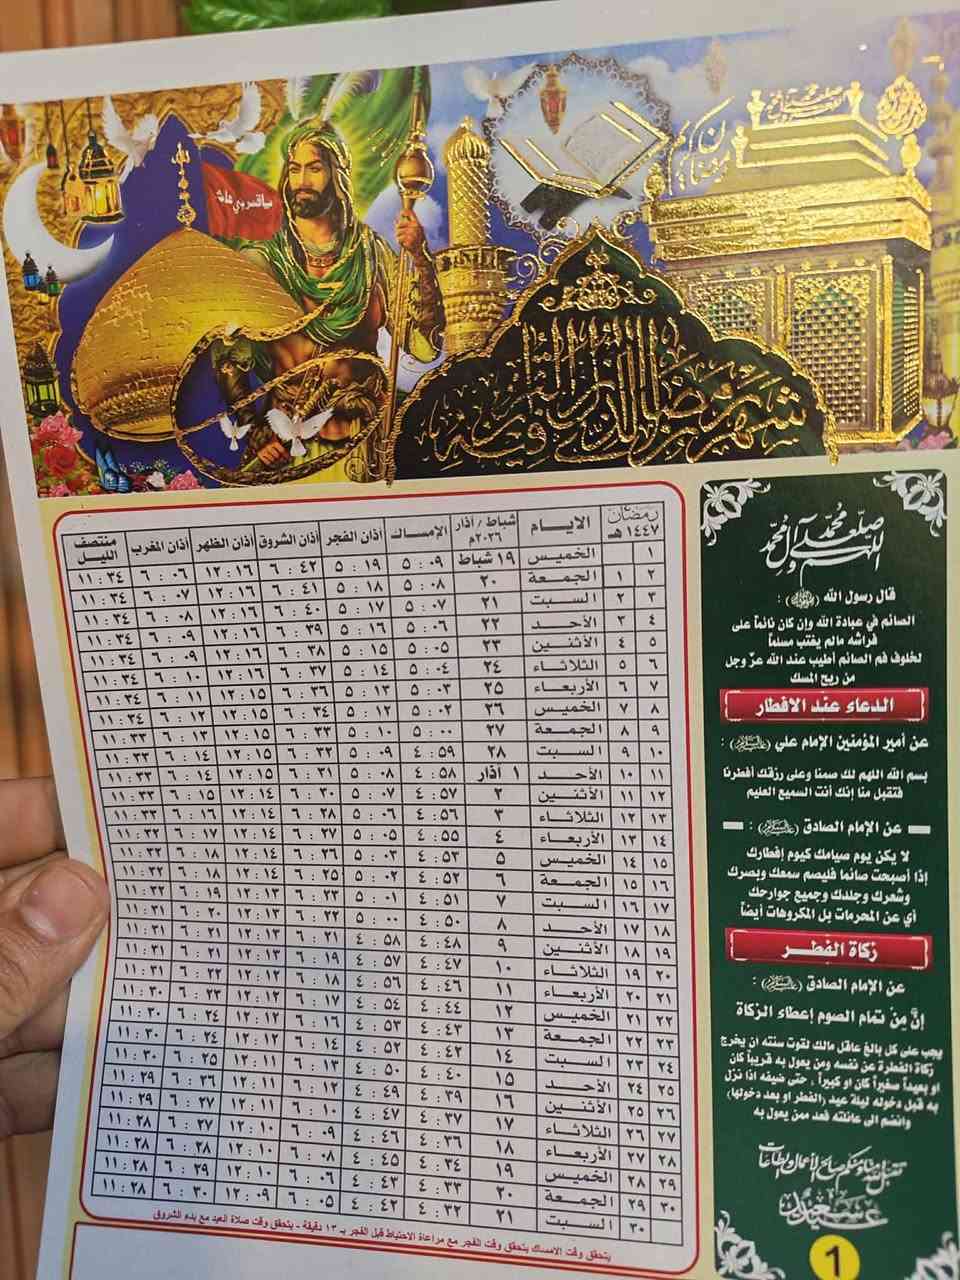 رمضان كريم
شهر رمضان الذي أنزل القرآن فيه
رمضان ١٤٤٧ هـ الايام شباط / أذار ٢٠٢٦م الإمساك أذان الفجر أذان الشروق أذان الظهر أذان المغرب منتصف الليل
١ الخميس ١٩ شباط ٥ : ٠٩ ٥ : ١٩ ٦ : ٤٢ ١٢ : ١٦ ٦ : ٠٦ ١١ : ٣٤
٢ ١ الجمعة ٢٠ ٥ : ٠٨ ٥ : ١٨ ٦ : ٤١ ١٢ : ١٦ ٦ : ٠٧ ١١ : ٣٤
٣ ٢ السبت ٢١ ٥ : ٠٧ ٥ : ١٧ ٦ : ٤٠ ١٢ : ١٦ ٦ : ٠٨ ١١ : ٣٤
٤ ٣ الأحد ٢٢ ٥ : ٠٦ ٥ : ١٦ ٦ : ٣٩ ١٢ : ١٦ ٦ : ٠٩ ١١ : ٣٤
٥ ٤ الأثنين ٢٣ ٥ : ٠٥ ٥ : ١٥ ٦ : ٣٨ ١٢ : ١٦ ٦ : ٠٩ ١١ : ٣٤
٦ ٥ الثلاثاء ٢٤ ٥ : ٠٤ ٥ : ١٤ ٦ : ٣٧ ١٢ : ١٦ ٦ : ١٠ ١١ : ٣٤
٧ ٦ الأربعاء ٢٥ ٥ : ٠٣ ٥ : ١٣ ٦ : ٣٦ ١٢ : ١٥ ٦ : ١١ ١١ : ٣٤
٨ ٧ الخميس ٢٦ ٥ : ٠٢ ٥ : ١٢ ٦ : ٣٤ ١٢ : ١٥ ٦ : ١٢ ١١ : ٣٤
٩ ٨ الجمعة ٢٧ ٥ : ٠٠ ٥ : ١٠ ٦ : ٣٣ ١٢ : ١٥ ٦ : ١٣ ١١ : ٣٣
١٠ ٩ السبت ٢٨ ٤ : ٥٩ ٥ : ٠٩ ٦ : ٣٢ ١٢ : ١٥ ٦ : ١٤ ١١ : ٣٣
١١ ١٠ الأحد ١ أذار ٤ : ٥٨ ٥ : ٠٨ ٦ : ٣١ ١٢ : ١٥ ٦ : ١٤ ١١ : ٣٣
١٢ ١١ الأثنين ٢ ٤ : ٥٧ ٥ : ٠٧ ٦ : ٣٠ ١٢ : ١٤ ٦ : ١٥ ١١ : ٣٣
١٣ ١٢ الثلاثاء ٣ ٤ : ٥٦ ٥ : ٠٦ ٦ : ٢٨ ١٢ : ١٤ ٦ : ١٦ ١١ : ٣٣
١٤ ١٣ الأربعاء ٤ ٤ : ٥٥ ٥ : ٠٥ ٦ : ٢٧ ١٢ : ١٤ ٦ : ١٧ ١١ : ٣٢
١٥ ١٤ الخميس ٥ ٤ : ٥٣ ٥ : ٠٣ ٦ : ٢٦ ١٢ : ١٤ ٦ : ١٨ ١١ : ٣٢
١٦ ١٥ الجمعة ٦ ٤ : ٥٢ ٥ : ٠٢ ٦ : ٢٥ ١٢ : ١٤ ٦ : ١٨ ١١ : ٣٢
١٧ ١٦ السبت ٧ ٤ : ٥١ ٥ : ٠١ ٦ : ٢٣ ١٢ : ١٣ ٦ : ١٩ ١١ : ٣٢
١٨ ١٧ الأحد ٨ ٤ : ٥٠ ٥ : ٠٠ ٦ : ٢٢ ١٢ : ١٣ ٦ : ٢٠ ١١ : ٣١
١٩ ١٨ الأثنين ٩ ٤ : ٤٨ ٤ : ٥٨ ٦ : ٢١ ١٢ : ١٣ ٦ : ٢١ ١١ : ٣١
٢٠ ١٩ الثلاثاء ١٠ ٤ : ٤٧ ٤ : ٥٧ ٦ : ١٩ ١٢ : ١٣ ٦ : ٢١ ١١ : ٣١
٢١ ٢٠ الأربعاء ١١ ٤ : ٤٦ ٤ : ٥٦ ٦ : ١٨ ١٢ : ١٢ ٦ : ٢٢ ١١ : ٣١
٢٢ ٢١ الخميس ١٢ ٤ : ٤٤ ٤ : ٥٤ ٦ : ١٧ ١٢ : ١٢ ٦ : ٢٣ ١١ : ٣٠
٢٣ ٢٢ الجمعة ١٣ ٤ : ٤٣ ٤ : ٥٣ ٦ : ١٦ ١٢ : ١٢ ٦ : ٢٤ ١١ : ٣٠
٢٤ ٢٣ السبت ١٤ ٤ : ٤٢ ٤ : ٥٢ ٦ : ١٤ ١٢ : ١٢ ٦ : ٢٤ ١١ : ٣٠
٢٥ ٢٤ الأحد ١٥ ٤ : ٤٠ ٤ : ٥٠ ٦ : ١٣ ١٢ : ١١ ٦ : ٢٥ ١١ : ٣٠
٢٦ ٢٥ الأثنين ١٦ ٤ : ٣٩ ٤ : ٤٩ ٦ : ١٢ ١٢ : ١١ ٦ : ٢٦ ١١ : ٢٩
٢٧ ٢٦ الثلاثاء ١٧ ٤ : ٣٧ ٤ : ٤٧ ٦ : ١٠ ١٢ : ١١ ٦ : ٢٧ ١١ : ٢٩
٢٨ ٢٧ الأربعاء ١٨ ٤ : ٣٦ ٤ : ٤٦ ٦ : ٠٩ ١٢ : ١٠ ٦ : ٢٧ ١١ : ٢٨
٢٩ ٢٨ الخميس ١٩ ٤ : ٣٤ ٤ : ٤٥ ٦ : ٠٨ ١٢ : ١٠ ٦ : ٢٨ ١١ : ٢٨
٣٠ ٢٩ الجمعة ٢٠ ٤ : ٣٣ ٤ : ٤٣ ٦ : ٠٦ ١٢ : ١٠ ٦ : ٢٩ ١١ : ٢٨
٣٠ السبت ٢١ ٤ : ٣٢ ٤ : ٤٢ ٦ : ٠٥ ١٢ : ٠٩ ٦ : ٣٠ ١١ : ٢٨
يتحقق وقت الامساك بتحقق وقت الفجر مع مراعاة الاحتياط قبل الفجر بـ ١٣ دقيقة - يتحقق وقت صلاة العيد مع بدء الشروق
اللهم صل على محمد وآل محمد
قال رسول الله (ﷺ) :
الصائم في عبادة الله وإن كان نائماً على
فراشه مالم يغتب مسلماً
لخلوف فم الصائم أطيب عند الله عزّ وجل
من ريح المسك
الدعاء عند الافطار
عن أمير المؤمنين الإمام علي (عليه السلام) :
بسم الله اللهم لك صمنا وعلى رزقك أفطرنا
فتقبل منا إنك أنت السميع العليم
عن الإمام الصادق (عليه السلام) :
لا يكن يوم صيامك كيوم إفطارك
إذا أصبحت صائما فليصم سمعك وبصرك
وشعرك وجلدك وجميع جوارحك
أي عن المحرمات بل المكروهات أيضاً
زكاة الفطر
عن الإمام الصادق (عليه السلام) :
إنَّ مِن تمام الصوم إعطاء الزكاة
يجب على كل بالغ عاقل مالك لقوت سنته ان يخرج
زكاة الفطرة عن نفسه ومن يعول به قريباً كان
او بعيداً صغيراً كان او كبيراً , حتى ضيفه اذا نزل
به قبل دخوله ليلة عيد (الفطر او بعد دخولها)
وانضم الى عائلته فعد ممن يعول به
تقبل الله منا ومنكم صالح الأعمال والطاعات
1